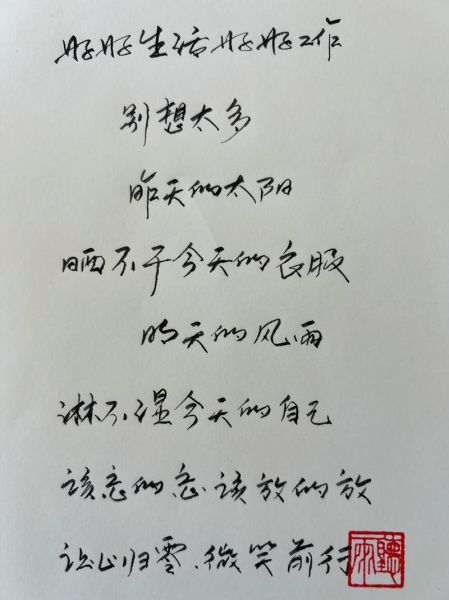 好好生活好好工作
别想太多
昨天的太阳
晒不干今天的衣服
明天的风雨
淋不湿今天的自己
该忘的忘.该放的放
让心归零.微笑前行
聽雨